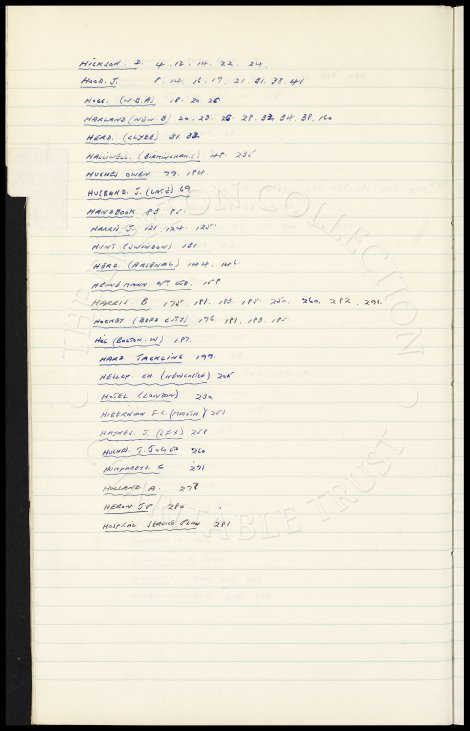 HICKSON. D. 4. 12. 14. 22. 24.
HOOD. J. 8. 14. 16. 19. 21. 31. 38. 41
HOGG. (W.B.A) 18. 20. 26
HARLAND (NEW. B) 20. 23. 26. 28. 32. 34. 38. 160
HERD. (CLYDE) 31. 32.
HALLIWELL. (BIRMINGHAM.C) 48. 235
HUGHES OWEN 79. 184
HUSBAND. J. (LATE) 69
HANDBOOK. 83. 85.
HARRIS. J. 121. 124. 125.
HUNT (SWINDON) 131
HERD. (ARSENAL) 144. 146.
HEINEMANN Wm LTD. 159
HARRIS. B 175. 181. 183. 185. 250. 260. 282. 291.
HOCKEY (BORO CITY) 176. 181. 183. 185
(BOLTON. W) 187
HARD TACKLING 199.
HESLOP. GH (NEWCASTLE) 205
HOTEL (LONDON) 230
HIBERNIAN F.C. (MALTA) 251
HAYNES. J. (LFX) 258
HUGHES. 260
HUMPHREYS. G 271
HOLLAND. A. 278
HERON J.P. 280
HOSPITAL SERVICE PLAN 281
THE COLLECTION
CHARITABLE TRUST